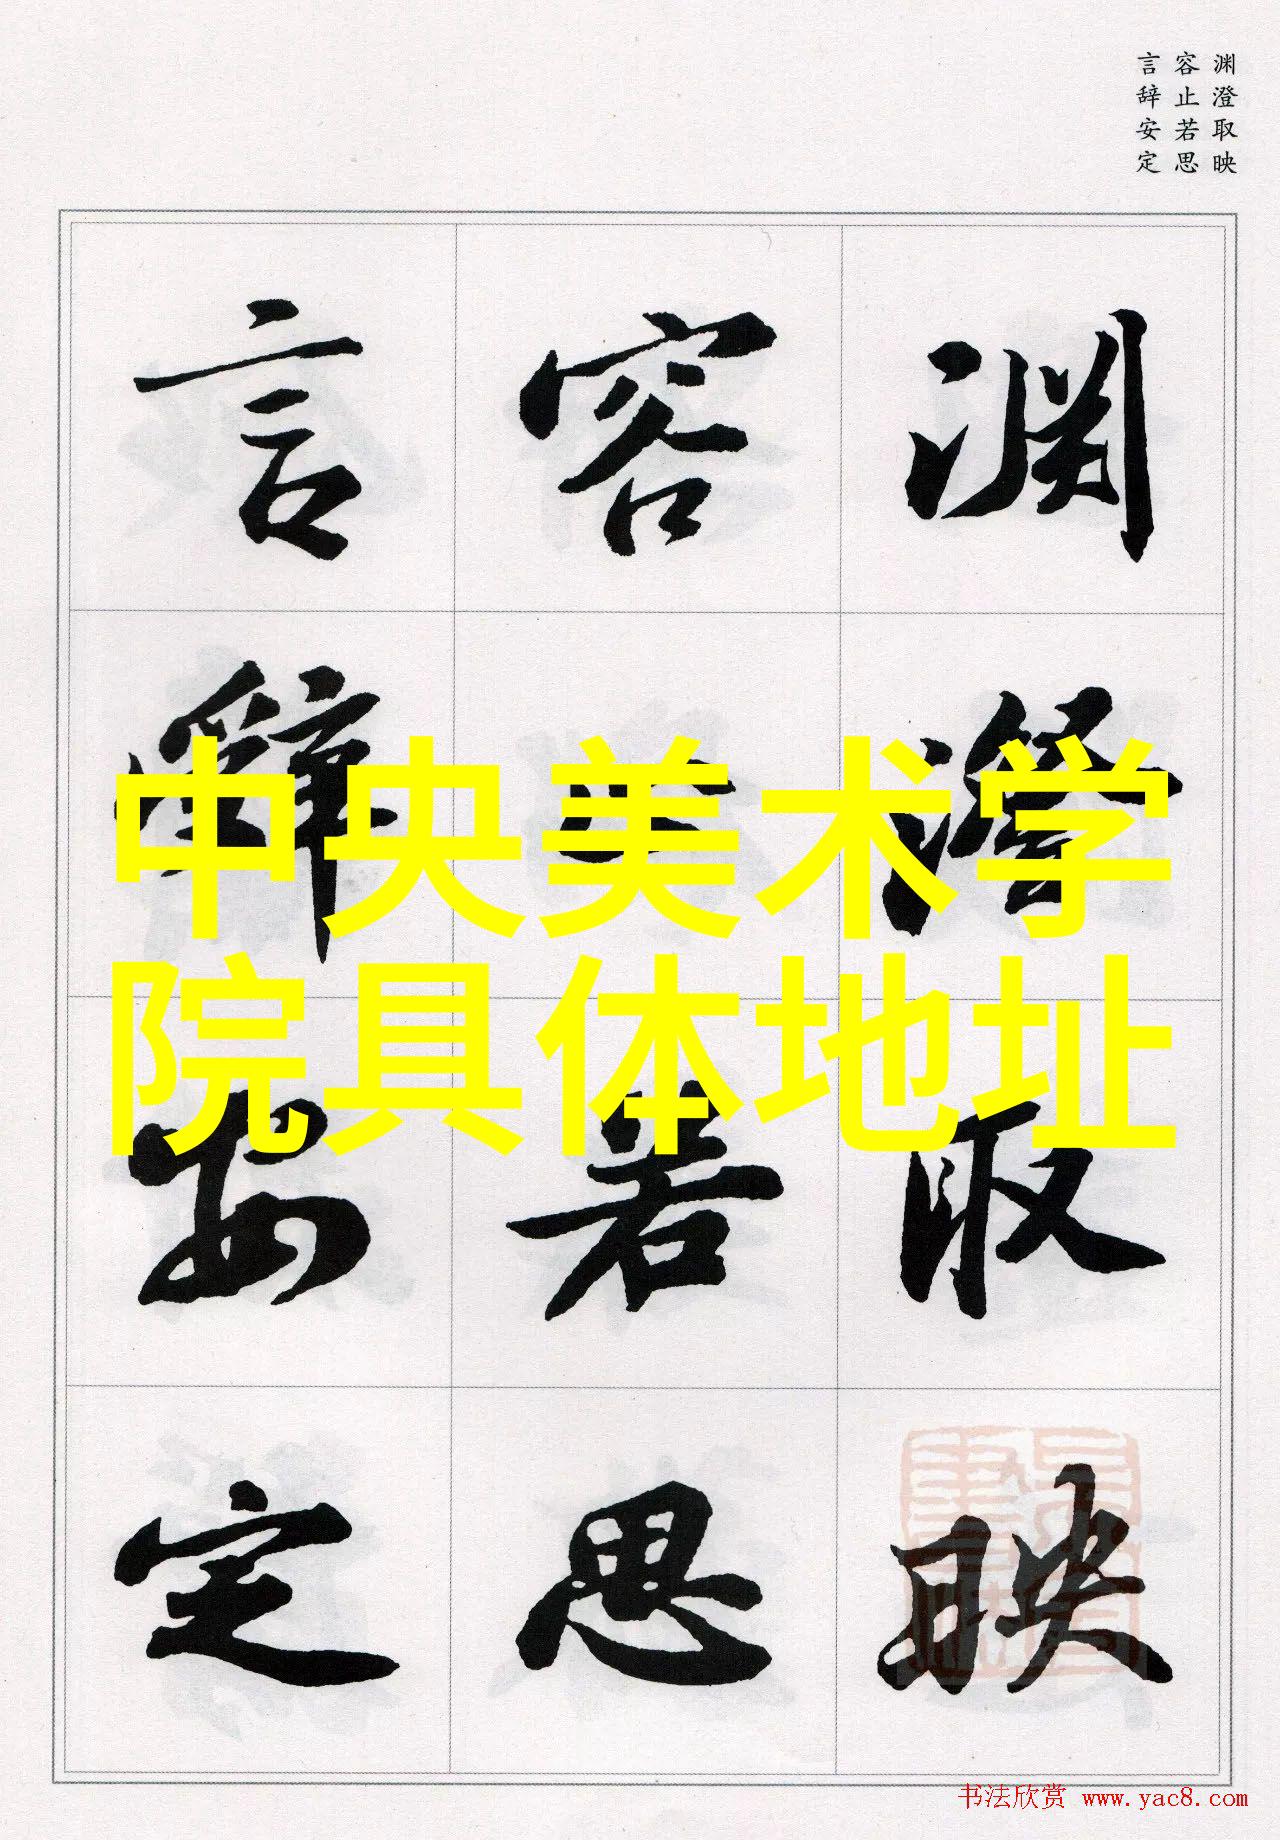 渊澄取映
容止若思
言辞安定
渊澄取映
容止若思
言辞安定
中央美术学
院具体地址
书法欣赏 www.yac8.com